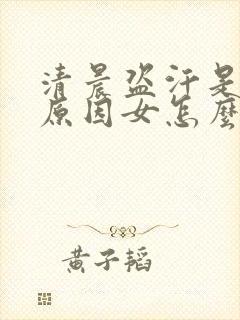 清晨盗汗是
原因女怎麼
黄子韬